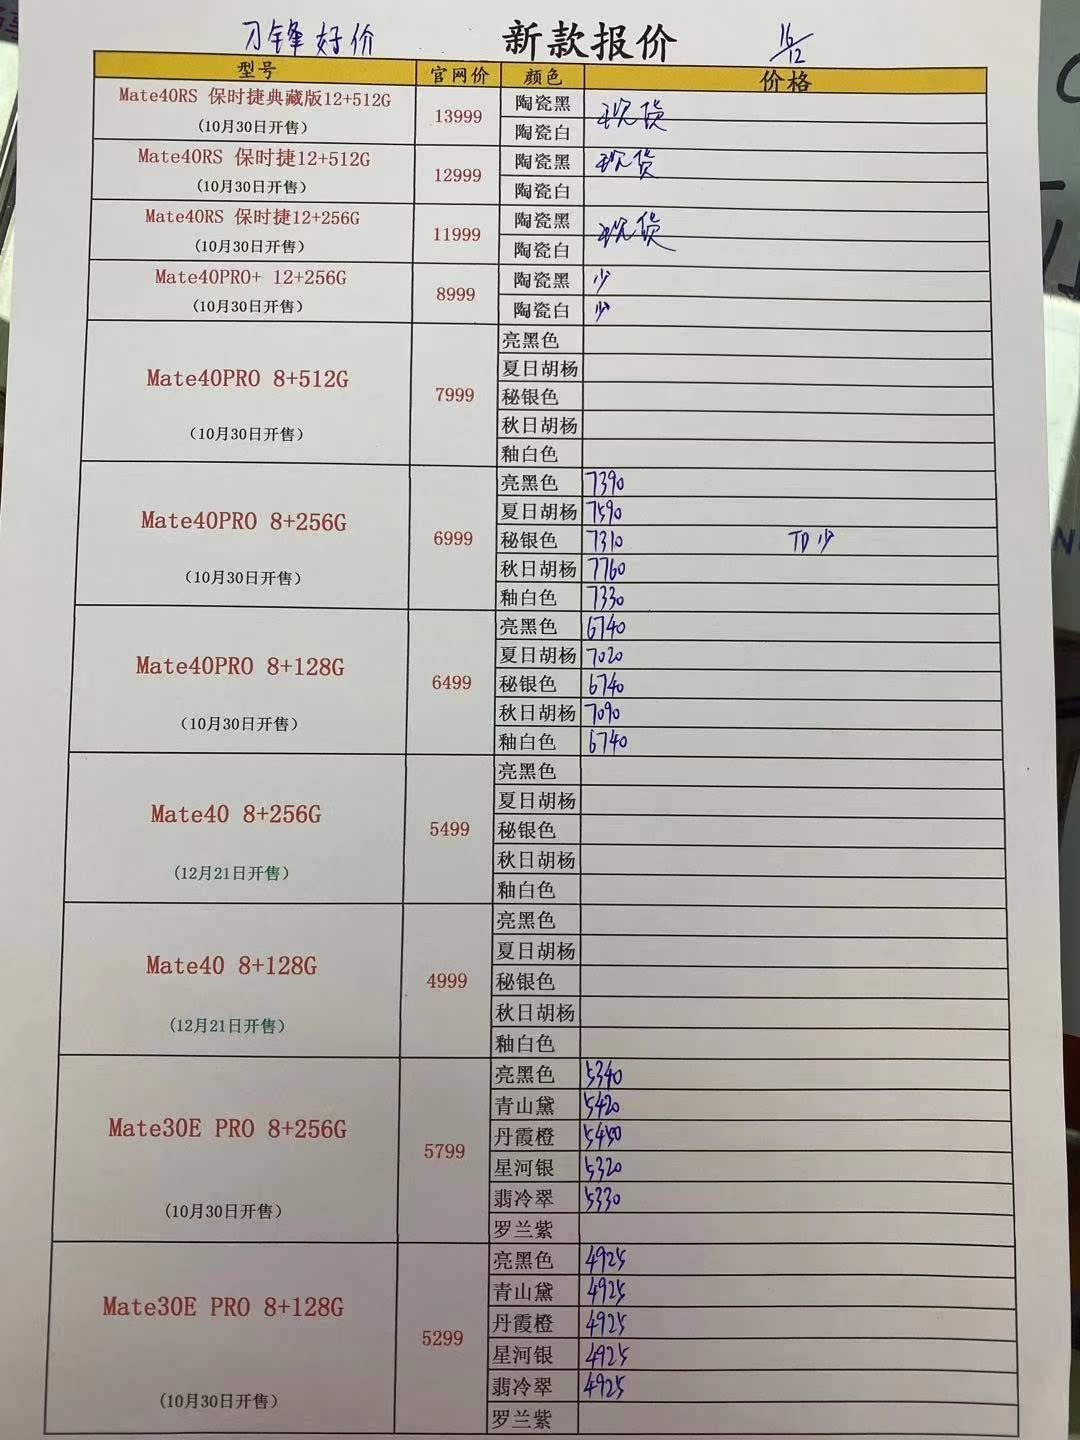 刀锋好价 新款报价 16/12
型号 官网价 颜色 价格
Mate40RS 保时捷典藏版12+512G (10月30日开售) 13999 陶瓷黑 现货
陶瓷白
Mate40RS 保时捷12+512G (10月30日开售) 12999 陶瓷黑 现货
陶瓷白
Mate40RS 保时捷12+256G (10月30日开售) 11999 陶瓷黑 现货
陶瓷白
Mate40PRO+ 12+256G (10月30日开售) 8999 陶瓷黑 少
陶瓷白 少
Mate40PRO 8+512G (10月30日开售) 7999 亮黑色
夏日胡杨
秘银色
秋日胡杨
釉白色
Mate40PRO 8+256G (10月30日开售) 6999 亮黑色 7390
夏日胡杨 7590
秘银色 7310 TD少
秋日胡杨 7760
釉白色 7330
Mate40PRO 8+128G (10月30日开售) 6499 亮黑色 6740
夏日胡杨 7020
秘银色 6740
秋日胡杨 7090
釉白色 6740
Mate40 8+256G (12月21日开售) 5499 亮黑色
夏日胡杨
秘银色
秋日胡杨
釉白色
Mate40 8+128G (12月21日开售) 4999 亮黑色
夏日胡杨
秘银色
秋日胡杨
釉白色
Mate30E PRO 8+256G (10月30日开售) 5799 亮黑色 5340
青山黛 5420
丹霞橙 5450
星河银 5320
翡冷翠 5330
罗兰紫
Mate30E PRO 8+128G (10月30日开售) 5299 亮黑色 4925
青山黛 4925
丹霞橙 4925
星河银 4925
翡冷翠 4925
罗兰紫